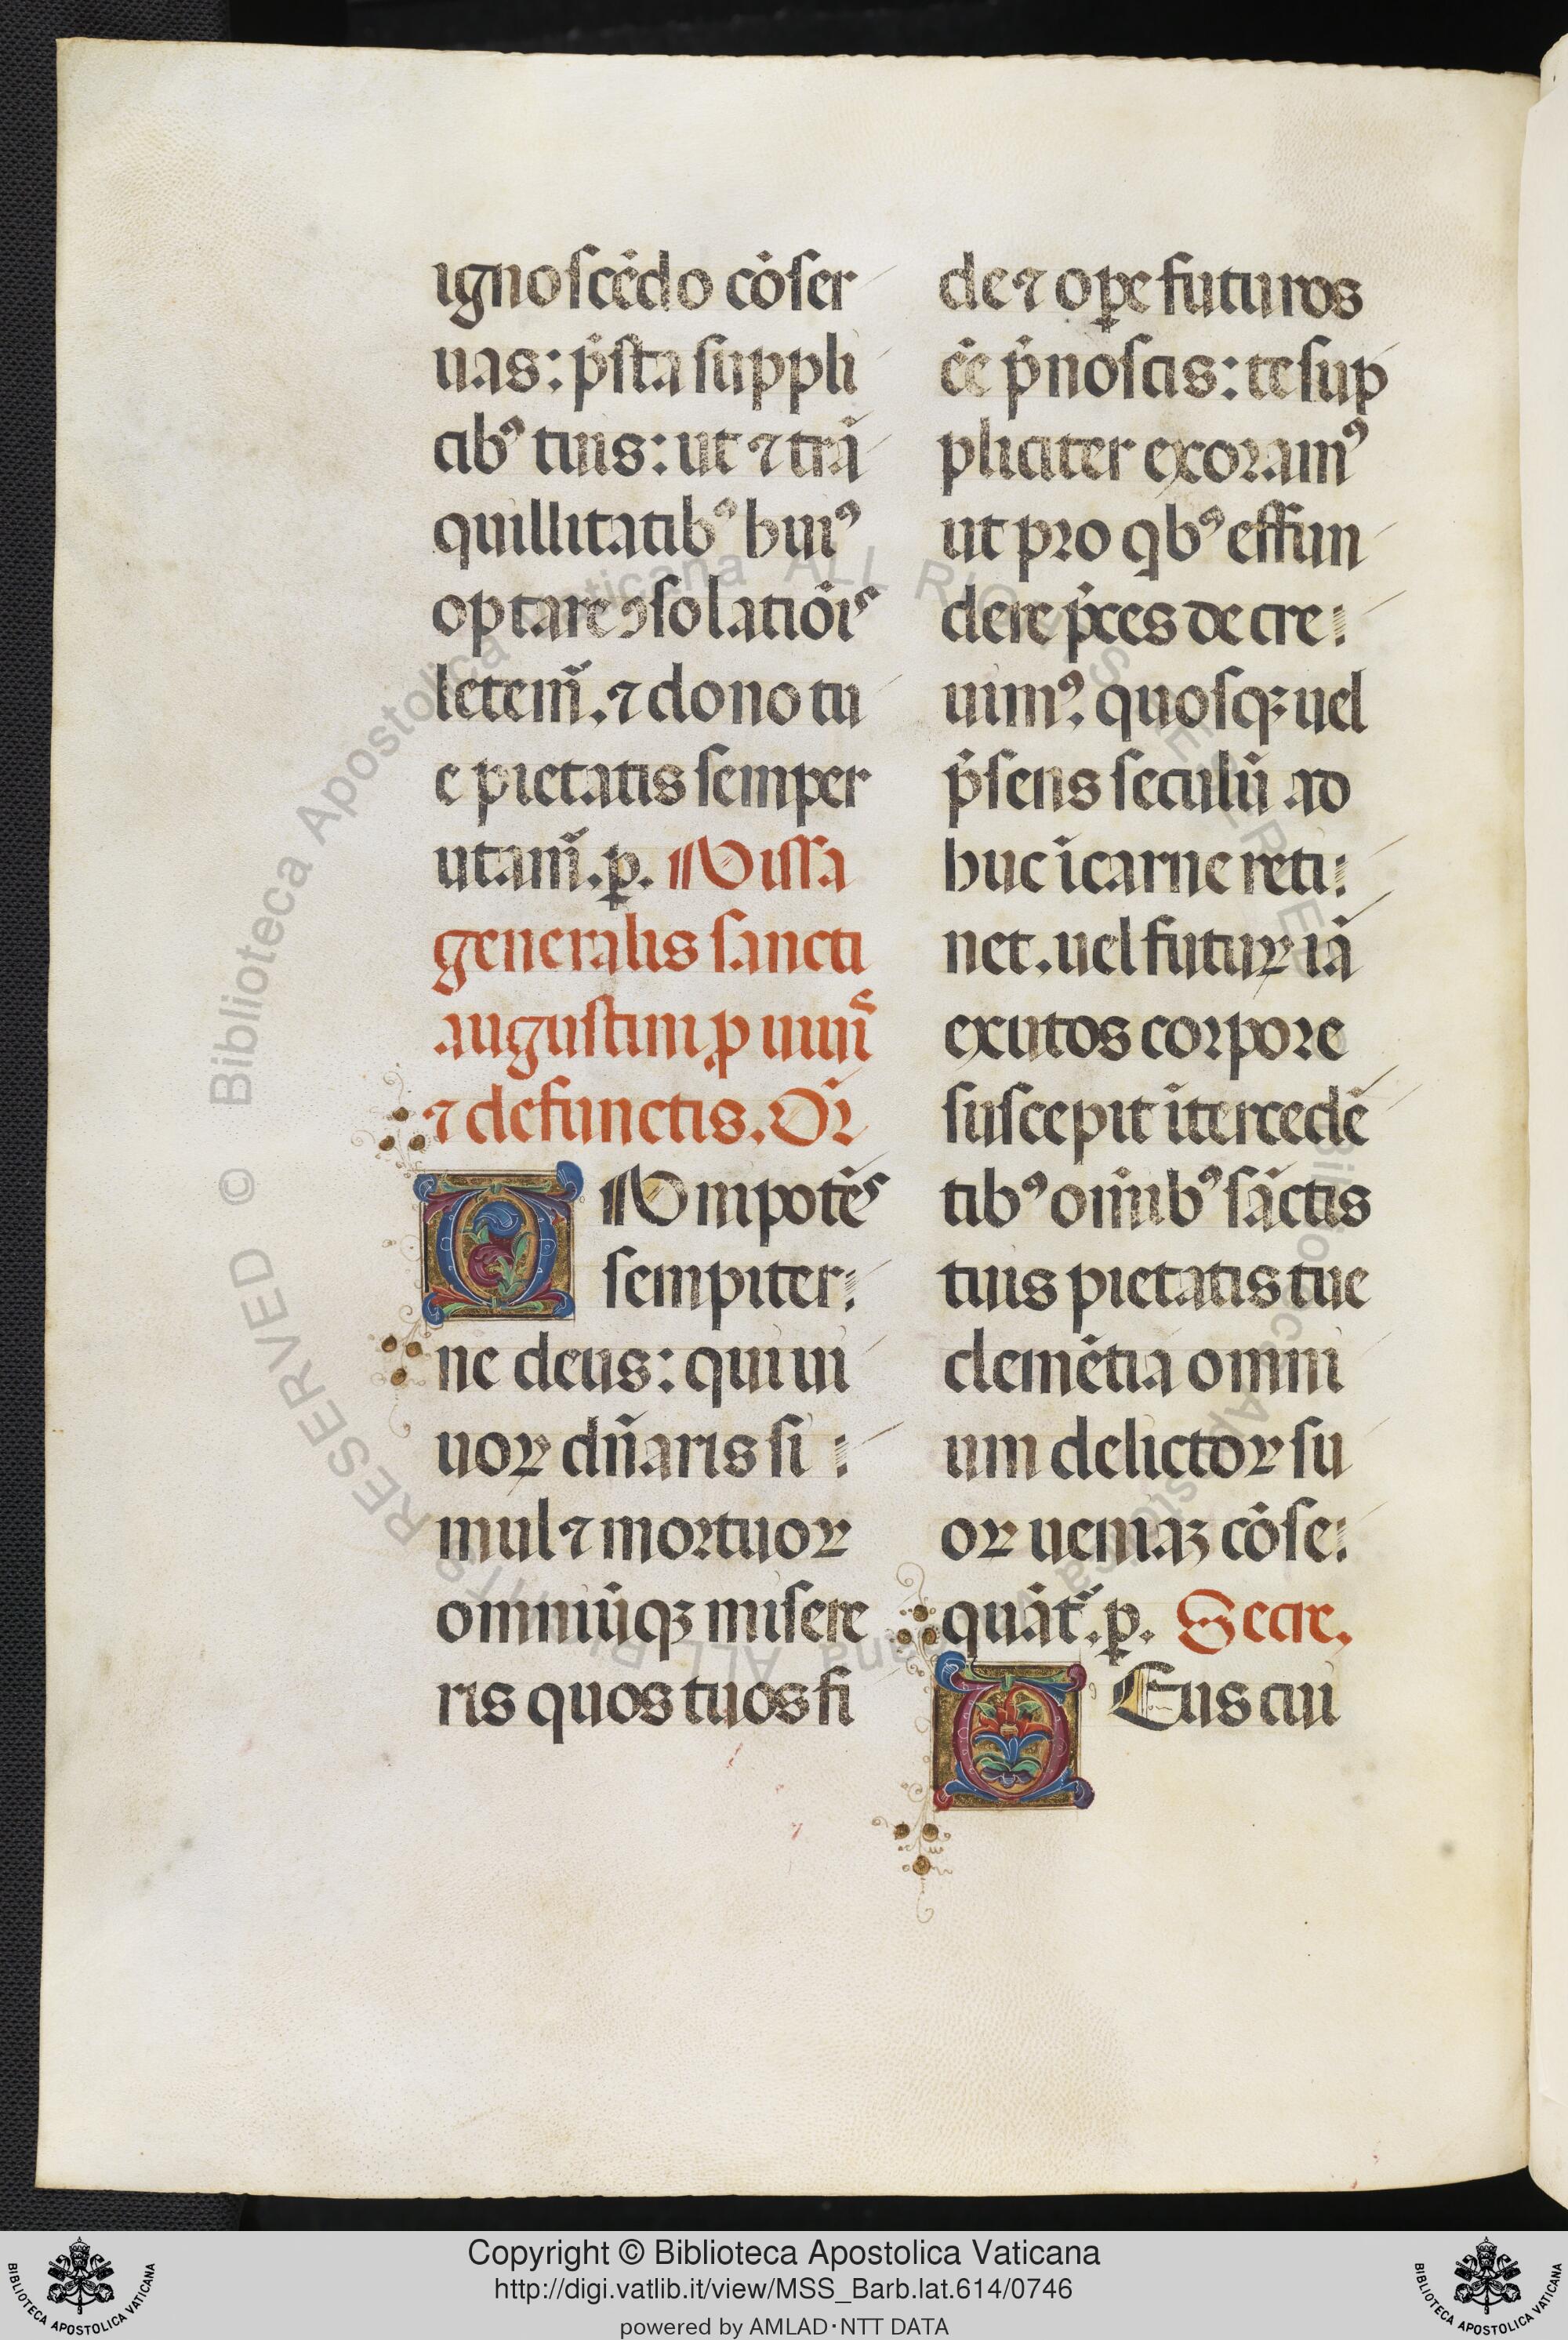 ignoscēdo cōſer
uas: p̄ſta ſuppli
cibꝰ tuis: ut ⁊ trā
quillitatibꝰ huiꝰ
optate ꝯſolatiōis
letem̄. ⁊ dono tu
e pietatis ſemper
utam̄. p̱. Miſſa
generalis ſancti
auguſtini ꝓ uiuis̄
⁊ defunctis. Or̄
OMnipotēs
ſempiter:
ne deus: qui ui
uoꝝ dn̄aris ſi :
mul ⁊ mortuoꝝ
omniūqꝫ miſere
ris quos tuos fi
de ⁊ oꝑe futuros
ēē p̄noſcis: te ſup
pliciter exoramꝰ
ut pro qbꝰ effun
dere p̄ces decre:
uimꝰ. quoſqꝫ uel
p̄ſens ſeculū ad
huc īcarne reti:
net. uel futuꝝ iā
exutos corpore
ſuſcepit ītercedē
tibꝰ om̄ibꝰ ſāctis
tuis pietatis tue
clemētia omni
um delictoꝝ ſu
oꝝ ueniaꝫ cōſe:
quāt̄. p̱. Secre.
DEus cui
© Biblioteca Apostolica Vaticana ALL RIGHTS RESERVED
Copyright © Biblioteca Apostolica Vaticana
http://digi.vatlib.it/view/MSS_Barb.lat.614/0746
powered by AMLAD·NTT DATA
BIBLIOTECA APOSTOLICA VATICANA
BIBLIOTECA APOSTOLICA VATICANA